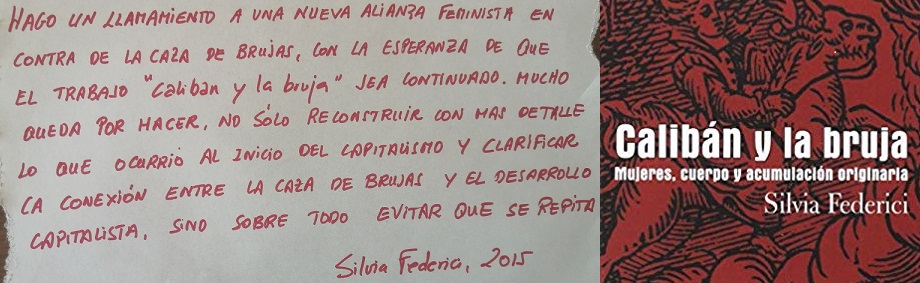 HAGO UN LLAMAMIENTO A UNA NUEVA ALIANZA FEMINISTA EN
CONTRA DE LA CAZA DE BRUJAS, CON LA ESPERANZA DE QUE
EL TRABAJO "Caliban y la bruja" SEA CONTINUADO. MUCHO
QUEDA POR HACER, NO SÓLO RECONSTRUIR CON MAS DETALLE
LO QUE OCURRIÓ AL INICIO DEL CAPITALISMO Y CLARIFICAR
LA CONEXIÓN ENTRE LA CAZA DE BRUJAS Y EL DESARROLLO
CAPITALISTA, SINO SOBRE TODO EVITAR QUE SE REPITA
Silvia Federici, 2015
Calibán y la bruja
Mujeres, cuerpo y acumulación originaria
Silvia Federici